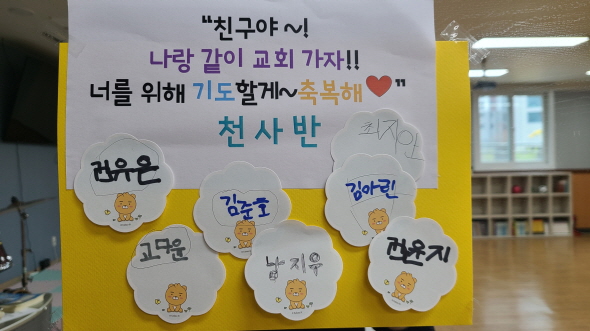 “친구야~!
나랑 같이 교회 가자!!
너를 위해 기도할게~축복해❤”
천사반
최지안
전유은
김준호
김아린
고무운
남지우
전윤지